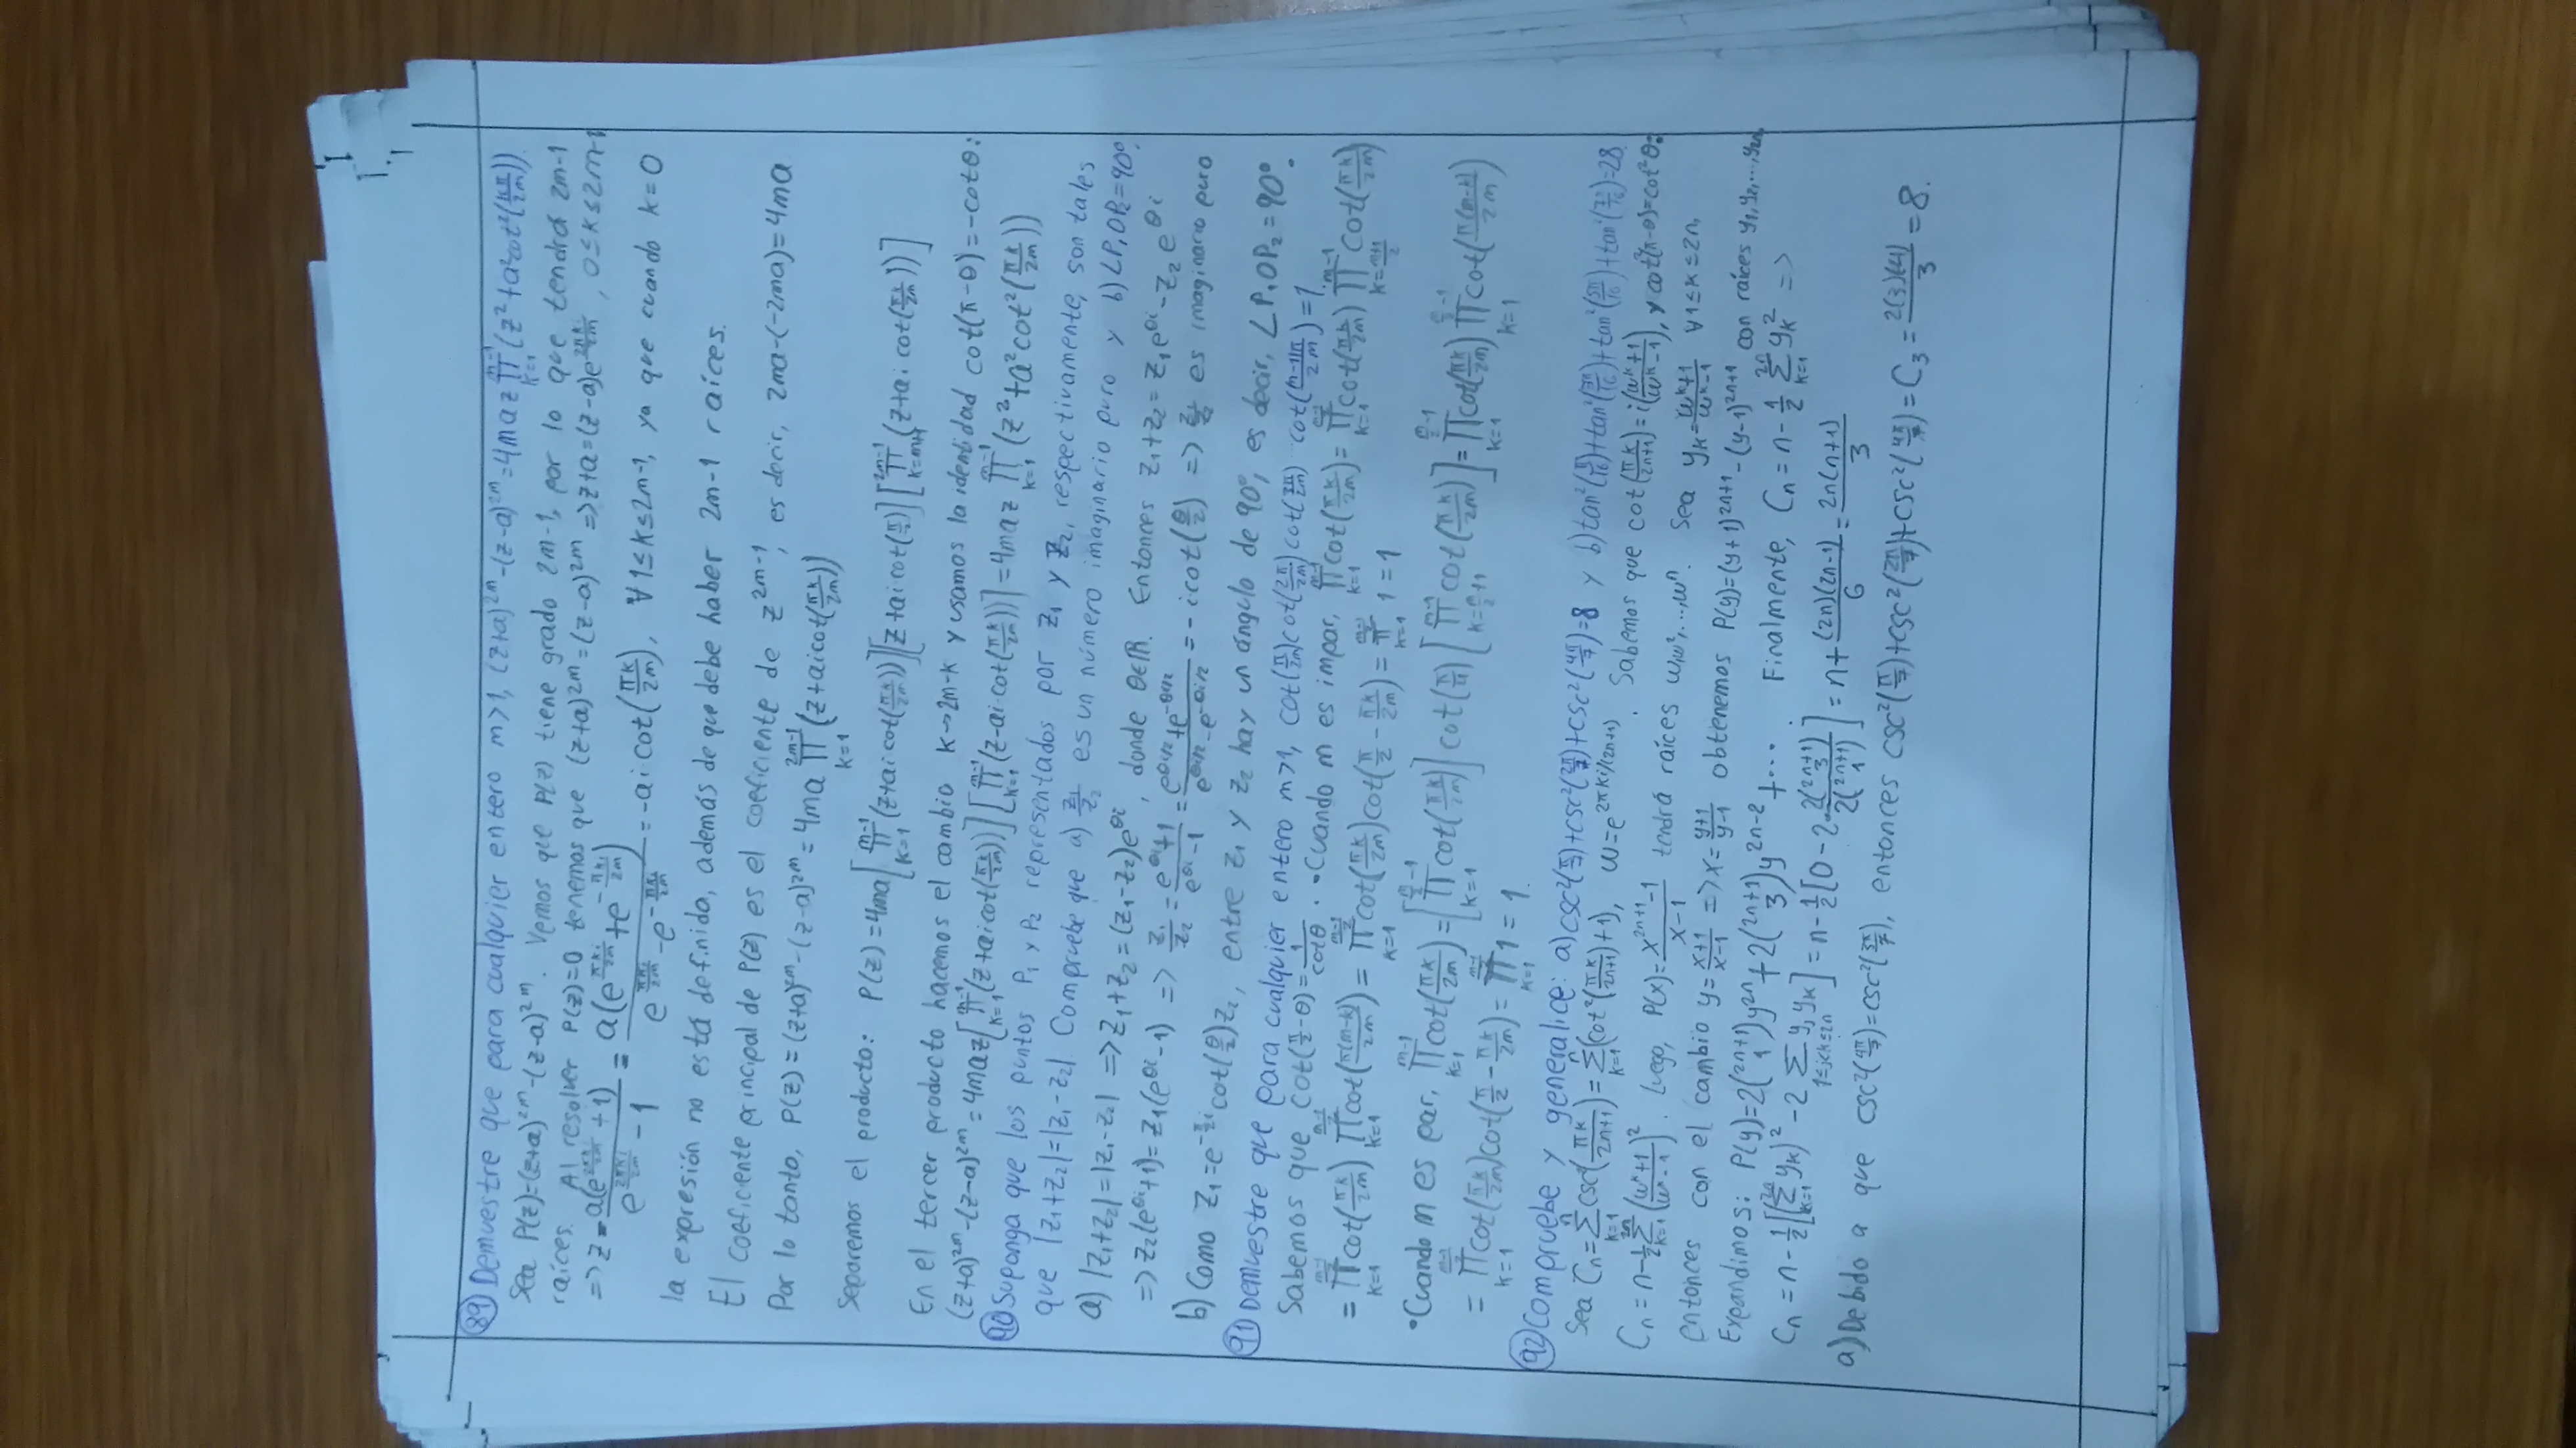 89) Demuestre que para cualquier entero m>1, (z+a)^{2m}-(z-a)^{2m}=4maz∏_{k=1}^{m-1}(z²+a²cot²(kπ/2m)).
Sea P(z)=(z+a)^{2m}-(z-a)^{2m}. Vemos que P(z) tiene grado 2m-1, por lo que tendrá 2m-1
raíces. Al resolver P(z)=0 tenemos que (z+a)^{2m}=(z-a)^{2m} => z+a=(z-a)e^{2πki/2m}, 0≤k≤2m-1
=> z = a(e^{2πki/2m}+1)/(e^{2πki/2m}-1) = a(e^{πki/2m}+e^{-πki/2m})/(e^{πki/2m}-e^{-πki/2m}) = -ai cot(πk/2m), ∀ 1≤k≤2m-1, ya que cuando k=0
la expresión no está definida, además de que debe haber 2m-1 raíces.
El coeficiente principal de P(z) es el coeficiente de z^{2m-1}, es decir, 2ma-(-2ma)=4ma
Por lo tanto, P(z)=(z+a)^{2m}-(z-a)^{2m}=4ma∏_{k=1}^{2m-1}(z+aicot(πk/2m))
Separemos el producto: P(z)=4ma[∏_{k=1}^{m-1}(z+ai cot(πk/2m))][z+ai cot(π/2)][∏_{k=m+1}^{2m-1}(z+ai cot(πk/2m))]
En el tercer producto hacemos el cambio k→2m-k y usamos la identidad cot(π-θ)=-cotθ:
(z+a)^{2m}-(z-a)^{2m}=4maz[∏_{k=1}^{m-1}(z+aicot(πk/2m))][∏_{k=1}^{m-1}(z-ai cot(πk/2m))]=4maz∏_{k=1}^{m-1}(z²+a²cot²(πk/2m))
90) Suponga que los puntos P₁ y P₂ representados por z₁ y z₂, respectivamente, son tales
que |z₁+z₂|=|z₁-z₂|. Compruebe que a) z₁/z₂ es un número imaginario puro y b) ∠P₁OP₂=90°.
a) |z₁+z₂|=|z₁-z₂| => z₁+z₂=(z₁-z₂)e^{θi}, donde θ∈ℝ. Entonces z₁+z₂=z₁e^{θi}-z₂e^{θi}
=> z₂(e^{θi}+1)=z₁(e^{θi}-1) => z₁/z₂=(e^{θi}+1)/(e^{θi}-1)=(e^{θi/2}+e^{-θi/2})/(e^{θi/2}-e^{-θi/2})=-icot(θ/2) => z₁/z₂ es imaginario puro
b) Como z₁=e^{-π/2 i}cot(θ/2)z₂, entre z₁ y z₂ hay un ángulo de 90°, es decir, ∠P₁OP₂=90°.
91) Demuestre que para cualquier entero m>1, cot(π/2m)cot(2π/2m)cot(3π/2m)...cot((m-1)π/2m)=1.
Sabemos que cot(π/2-θ)=1/cotθ. •Cuando m es impar, ∏_{k=1}^{m-1}cot(πk/2m)=∏_{k=1}^{(m-1)/2}cot(πk/2m)∏_{k=(m+1)/2}^{m-1}cot(πk/2m)
=∏_{k=1}^{(m-1)/2}cot(πk/2m)∏_{k=1}^{(m-1)/2}cot(π(m-k)/2m)=∏_{k=1}^{(m-1)/2}cot(πk/2m)cot(π/2-πk/2m)=∏_{k=1}^{(m-1)/2}1=1
•Cuando m es par, ∏_{k=1}^{m-1}cot(πk/2m)=[∏_{k=1}^{m/2-1}cot(πk/2m)]cot(π/4)[∏_{k=m/2+1}^{m-1}cot(πk/2m)]=∏_{k=1}^{m/2-1}cot(πk/2m)∏_{k=1}^{m/2-1}cot(π(m-k)/2m)
=∏_{k=1}^{(m-1)/2}cot(πk/2m)cot(π/2-πk/2m)=∏_{k=1}^{(m-1)/2}1=1.
92) Compruebe y generalice: a) csc²(π/7)+csc²(2π/7)+csc²(4π/7)=8 y b) tan²(π/16)+tan²(3π/16)+tan²(5π/16)+tan²(7π/16)=28.
Sea Cₙ=∑_{k=1}^{n}csc²(πk/2n+1)=∑_{k=1}^{n}(cot²(πk/2n+1)+1), ω=e^{2πki/(2n+1)}. Sabemos que cot(πk/2n+1)=i(ω^k+1/ω^k-1), y cot²(π-θ)=cot²θ:
Cₙ=n-½∑_{k=1}^{2n}(ω^k+1/ω^k-1)². Luego, P(x)=(x^{2n+1}-1)/(x-1) tendrá raíces ω,ω²,...,ωⁿ. Sea y_k=(ω^k+1)/(ω^k-1) ∀1≤k≤2n,
entonces con el cambio y=(x+1)/(x-1) => x=(y+1)/(y-1) obtenemos P(y)=(y+1)^{2n+1}-(y-1)^{2n+1} con raíces y₁,y₂,...,y₂ₙ.
Expandimos: P(y)=2(2n+1 1)y^{2n}+2(2n+1 3)y^{2n-2}+... Finalmente, Cₙ=n-½∑_{k=1}^{2n}y_k² =>
Cₙ=n-½[(∑_{k=1}^{2n}y_k)²-2∑_{1≤j<k≤2n}y_j y_k]=n-½[0-2·2(2n+1 3)/2(2n+1 1)]=n+(2n)(2n-1)/6=2n(n+1)/3
a) Debido a que csc²(4π/7)=csc²(3π/7), entonces csc²(π/7)+csc²(2π/7)+csc²(4π/7)=C₃=2(3)(4)/3=8.